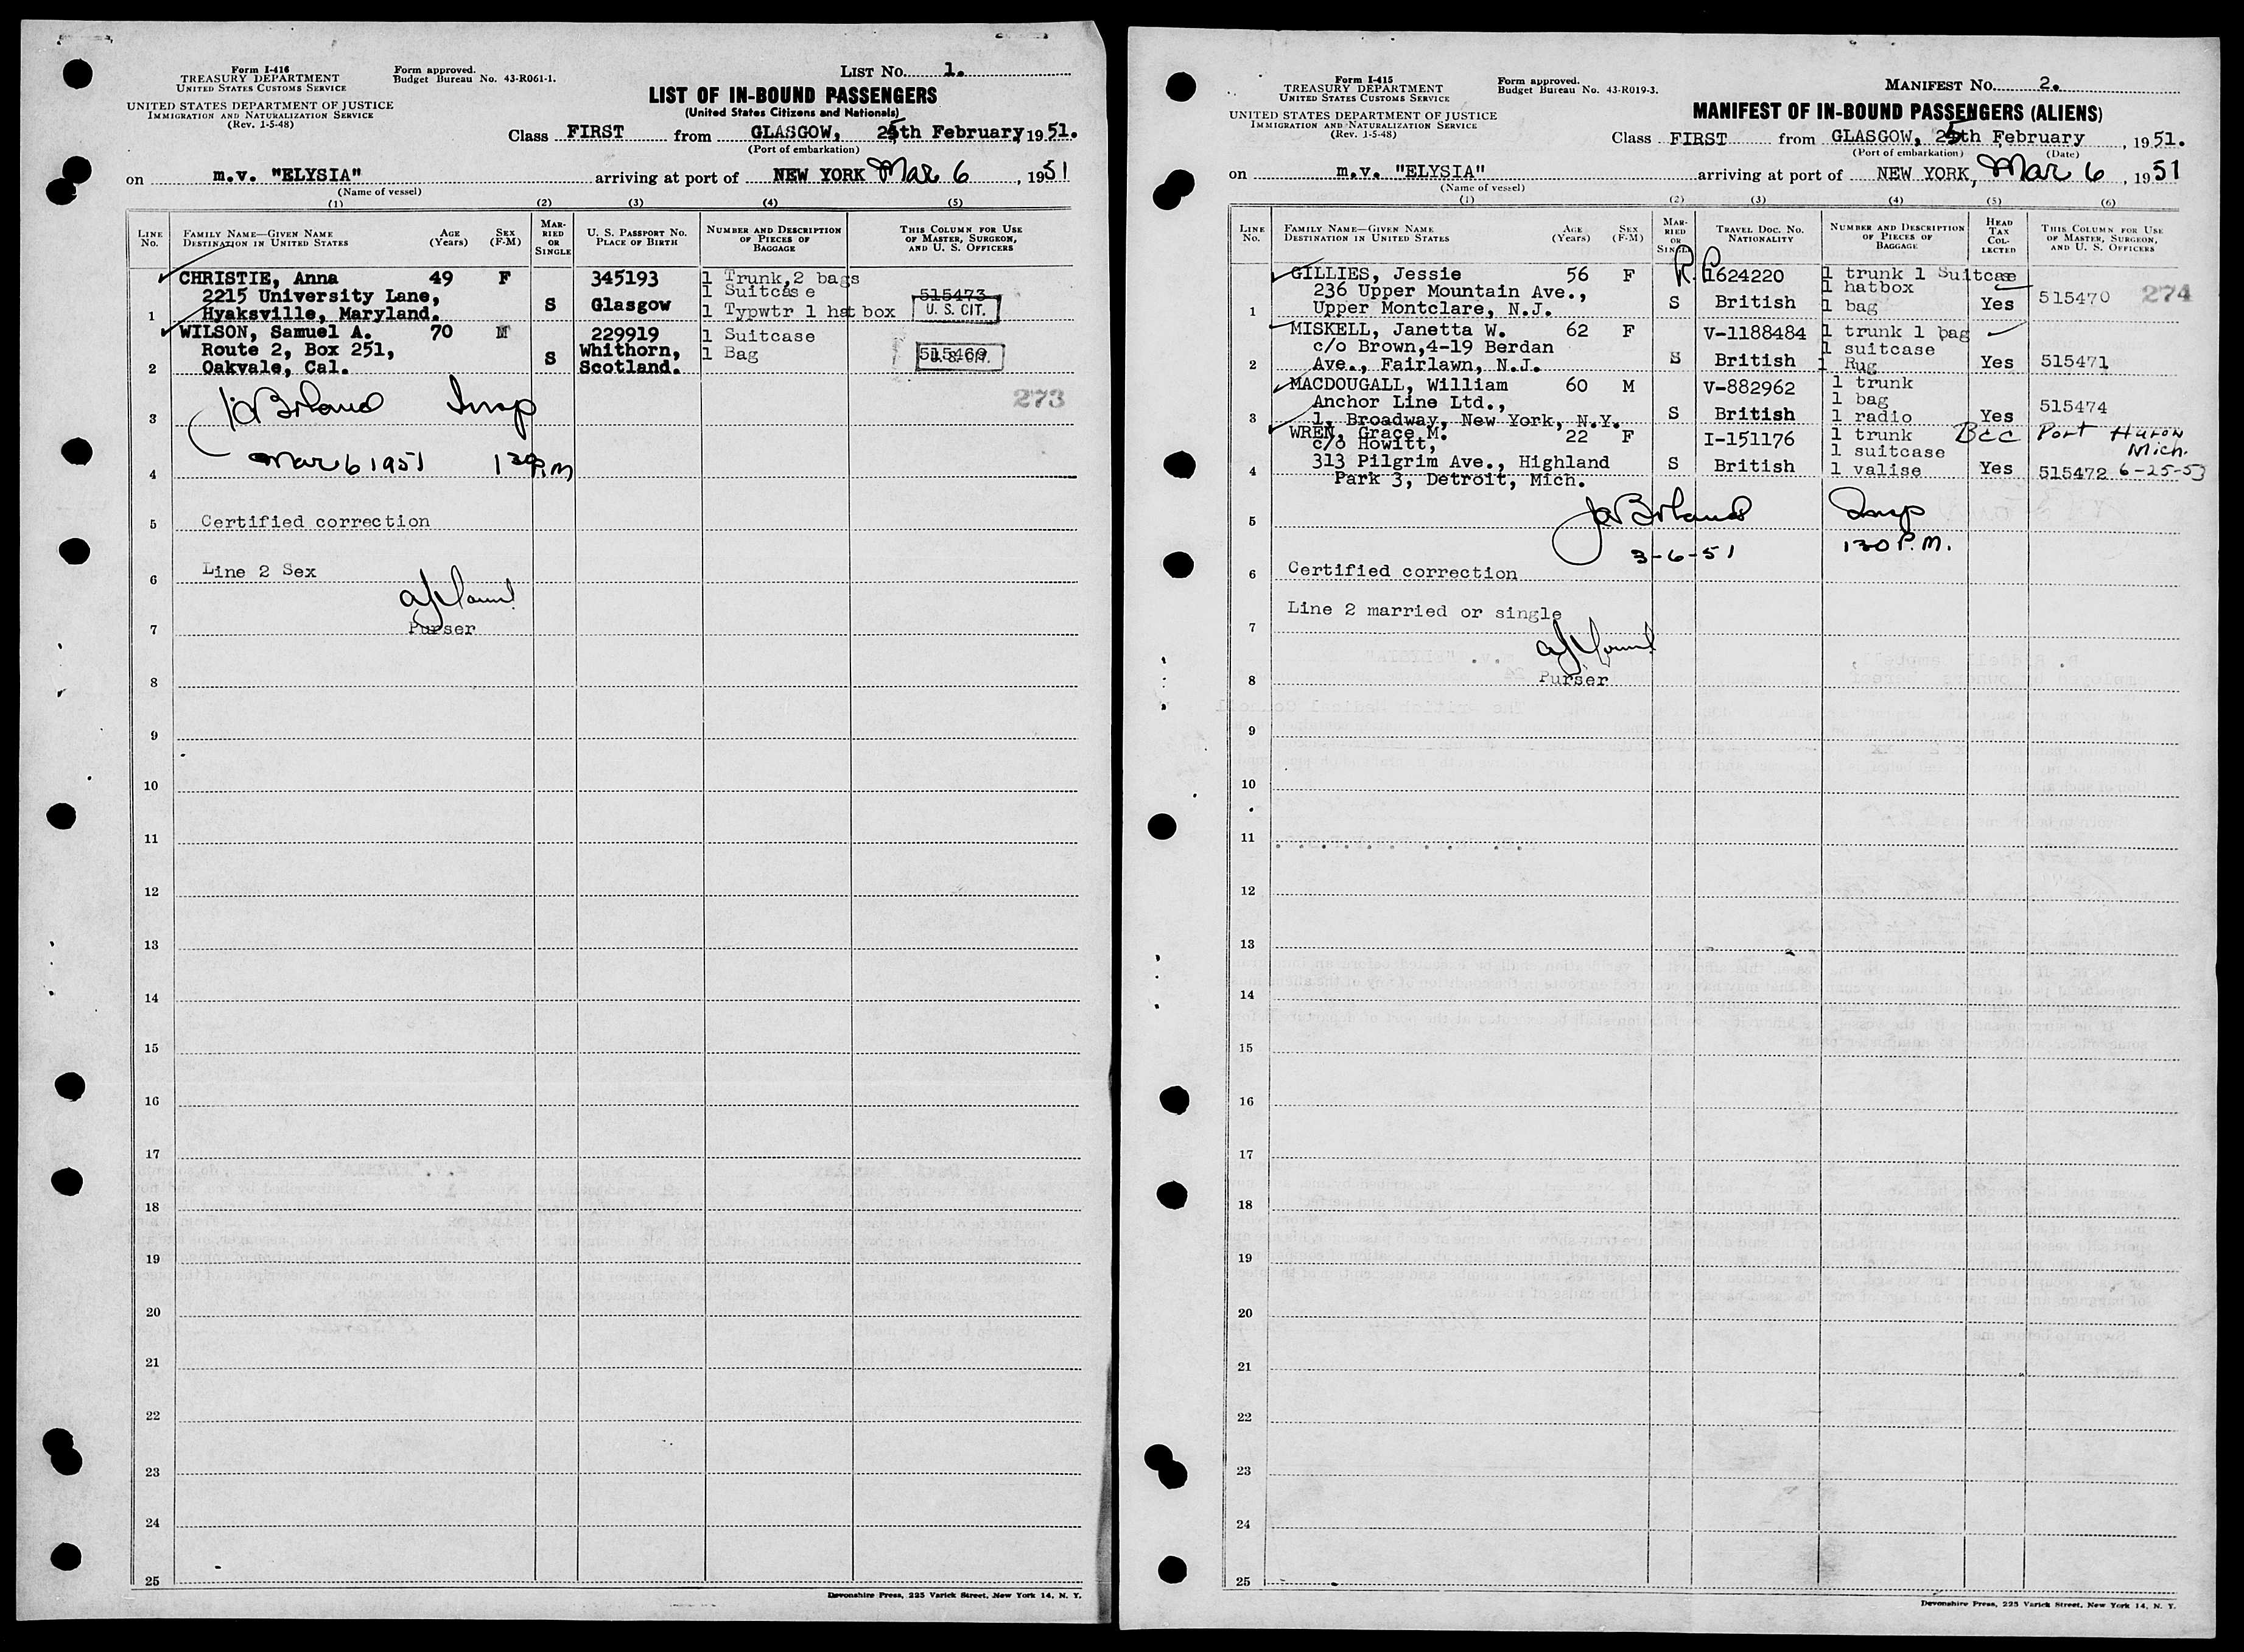 Form I-416
TREASURY DEPARTMENT
UNITED STATES CUSTOMS SERVICE
UNITED STATES DEPARTMENT OF JUSTICE
IMMIGRATION AND NATURALIZATION SERVICE
(Rev. 1-5-48)
Form approved.
Budget Bureau No. 43-R061-1.
LIST No. 1.
LIST OF IN-BOUND PASSENGERS
(United States Citizens and Nationals)
Class FIRST from GLASGOW, 25th February, 1951.
(Port of embarkation)
on m.v. "ELYSIA" arriving at port of NEW YORK Mar 6, 1951
(Name of vessel)
(1) (2) (3) (4) (5)
LINE No. FAMILY NAME—GIVEN NAME DESTINATION IN UNITED STATES AGE (Years) SEX (F-M) MARRIED OR SINGLE U. S. PASSPORT No. PLACE OF BIRTH NUMBER AND DESCRIPTION OF PIECES OF BAGGAGE THIS COLUMN FOR USE OF MASTER, SURGEON, AND U. S. OFFICERS
CHRISTIE, Anna 49 F 345193 1 Trunk, 2 bags
2215 University Lane, 1 Suitcase 515473
1 Hyaksville, Maryland. S Glasgow 1 Typwtr 1 hat box U. S. CIT.
WILSON, Samuel A. 70 M 229919 1 Suitcase
Route 2, Box 251, Whithorn, 1 Bag 515469 U. S. CIT.
2 Oakvale, Cal. S Scotland.
273
3 Insp
4 Mar 6 1951 1 30 P.M
5 Certified correction
6 Line 2 Sex
7 Purser
8
9
10
11
12
13
14
15
16
17
18
19
20
21
22
23
24
25
Devonshire Press, 225 Varick Street, New York 14, N. Y.
Form I-415
TREASURY DEPARTMENT
UNITED STATES CUSTOMS SERVICE
UNITED STATES DEPARTMENT OF JUSTICE
IMMIGRATION AND NATURALIZATION SERVICE
(Rev. 1-5-48)
Form approved.
Budget Bureau No. 43-R019-3.
MANIFEST No. 2.
MANIFEST OF IN-BOUND PASSENGERS (ALIENS)
Class FIRST from GLASGOW, 25th February, 1951.
(Port of embarkation) (Date)
on m.v. "ELYSIA" arriving at port of NEW YORK, Mar 6, 1951
(Name of vessel)
(1) (2) (3) (4) (5) (6)
LINE No. FAMILY NAME—GIVEN NAME DESTINATION IN UNITED STATES AGE (Years) SEX (F-M) MARRIED OR SINGLE TRAVEL DOC. No. NATIONALITY NUMBER AND DESCRIPTION OF PIECES OF BAGGAGE HEAD TAX COLLECTED THIS COLUMN FOR USE OF MASTER, SURGEON, AND U. S. OFFICERS
GILLIES, Jessie 56 F R.P. 1624220 1 trunk 1 Suitcase
236 Upper Mountain Ave., 1 hatbox
1 Upper Montclare, N.J. S British 1 bag Yes 515470 274
MISKELL, Janetta W. 62 F V-1188484 1 trunk 1 bag
c/o Brown,4-19 Berdan 1 suitcase
2 Ave., Fairlawn, N.J. S British 1 Rug Yes 515471
MACDOUGALL, William 60 M V-882962 1 trunk
Anchor Line Ltd., 1 bag 515474
3 1, Broadway, New York, N.Y. S British 1 radio Yes
WREN, Grace M. 22 F I-151176 1 trunk BCC Port Huron
c/o Howitt, 1 suitcase Mich.
4 313 Pilgrim Ave., Highland S British 1 valise Yes 515472 6-25-53
Park 3, Detroit, Mich.
5 Insp
3-6-51 130 P.M.
6 Certified correction
7 Line 2 married or single
8 Purser
9
10
11
12
13
14
15
16
17
18
19
20
21
22
23
24
25
Devonshire Press, 225 Varick Street, New York 14, N. Y.